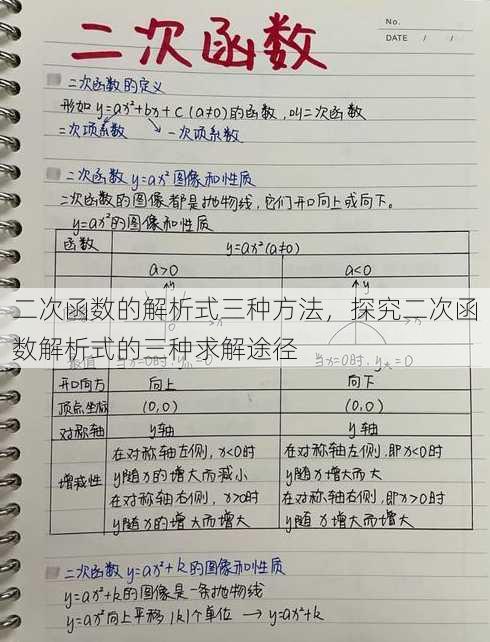 No.
DATE / /
二次函数
二次函数的定义
形如y=ax²+bx+c(a≠0)的函数,叫二次函数
二次项系数 一次项系数
二次函数y=ax²图像和性质
二次函数的图像都是抛物线,它们开口向上或向下。
y=ax²的图像和性质
函数 y=ax²(a≠0)
a>0 a<0
y y
二次函数的解析式三种方法，探究二次函
数解析式的三种求解途径
当x=0时, 当x=0时, =0
开口向方 向上 向下
顶点坐标 (0,0) (0,0)
对称轴 y轴 y轴
增减性
在对称轴左侧, x<0时 在对称轴左侧.即x<0时
y随x的增大而减小 y随x的增大而增大
在对称轴右侧, x>0时 在对称轴右侧.即x>0时
y随x的增大而增大 y随x增大而增大
二次函数y=ax²+k的图像和性质
y=ax²+k的图像是一条抛物线
y=ax²向上平移|k|个单位 → y=ax²+k